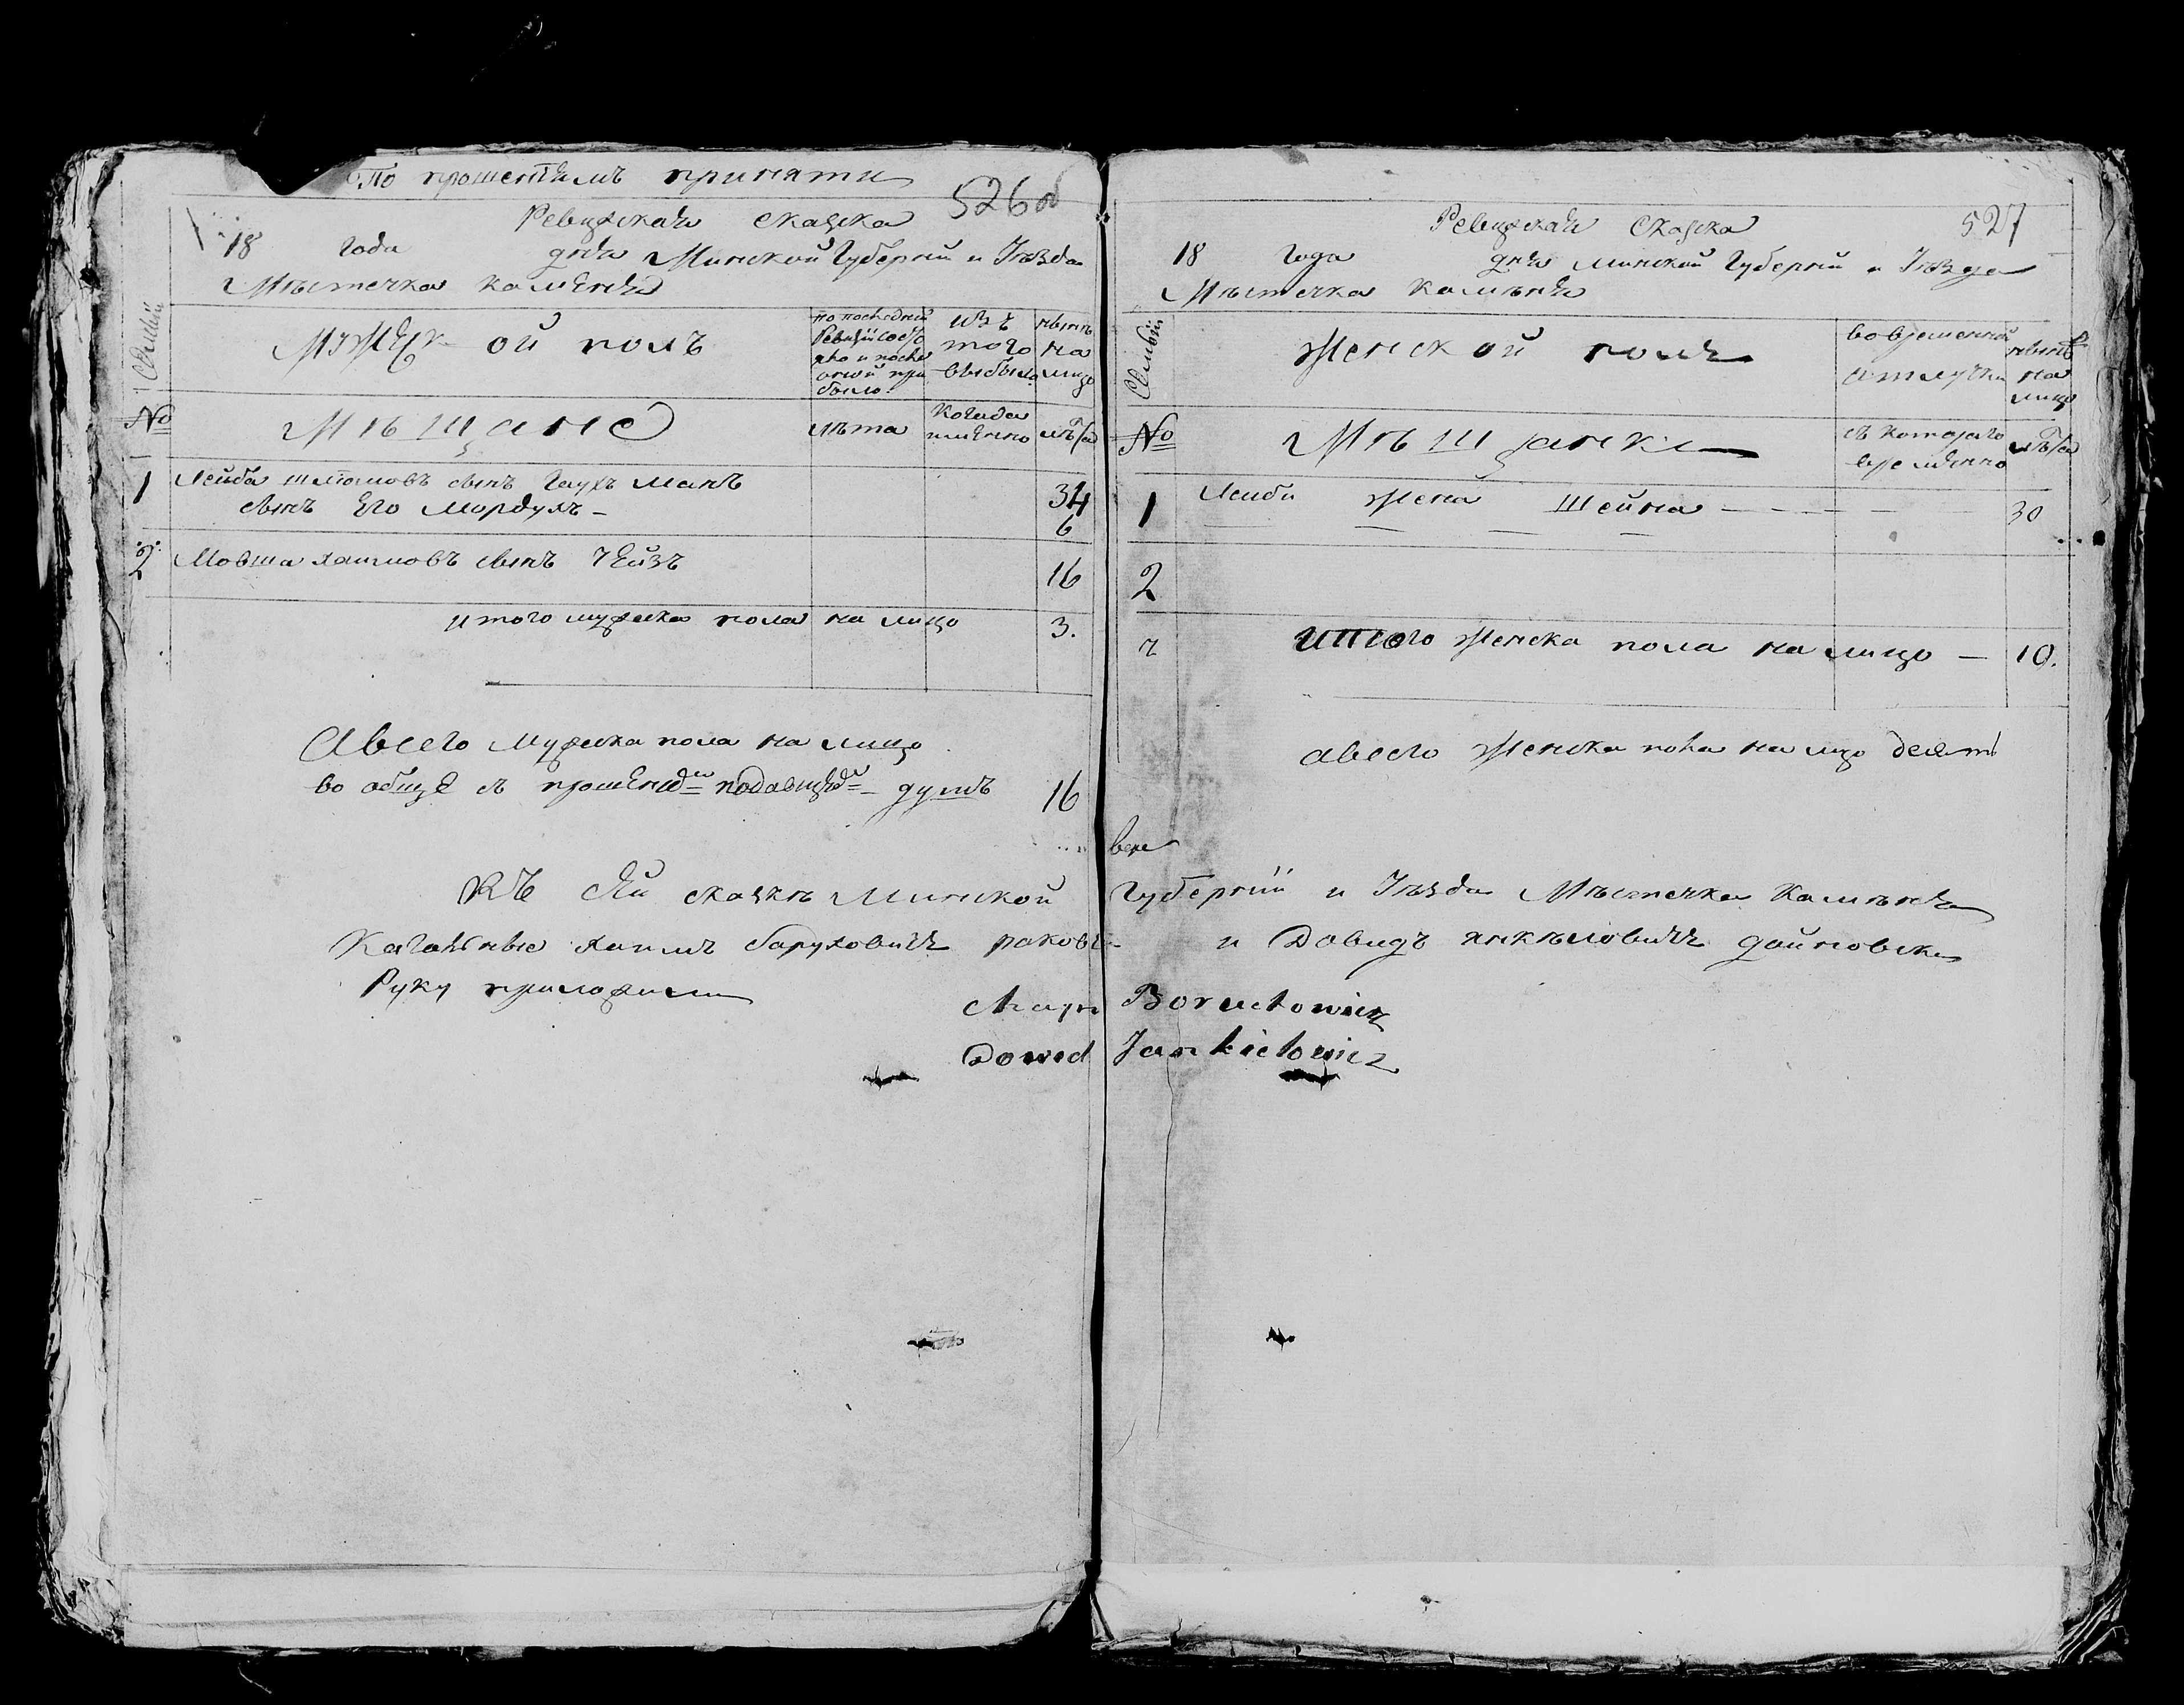 По прошениямъ приняти
526об
Ревизская сказка
18 года дня Минской Губерніи и Уезда
Местечка Каменя
Семьи
Мужеск ой полъ
по последней Ревизіи состояло и после оной прибыло
изъ того выбыло
ныне на лицо
№
Мещане
лета
Когда имянно
лета
1 Лейба шлiомовъ сынъ Гаухъ манъ 34
сынъ Его Мордухъ - 6
2 Мовша хаимовъ сынъ Чеизъ 16
Итого мужеска пола на лицо 3.
Авсего мужеска пола на лицо
во обще съ душъ 16
527
Ревизская Сказка
18 года дня Минской Губерніи и Уезда
Местечка Каменя
Семьи
Женской полъ
во временной отлучки
ныне на лицо
№
Мещанки
съ котораго времянно
лета
1 Лейби жена Шейна - - - - 30
2
Итого женска пола на лицо - 10.
Авсего женска пола на лицо десять
Къ сей сказке Минской Губерніи и Уезда Местечка Каменя
Кагальные хаимъ Баруховичъ раковь и Довидъ янкеловичъ дайновски
Руку приложили
Chaim Boruchowicz
Dowed Jankielowicz